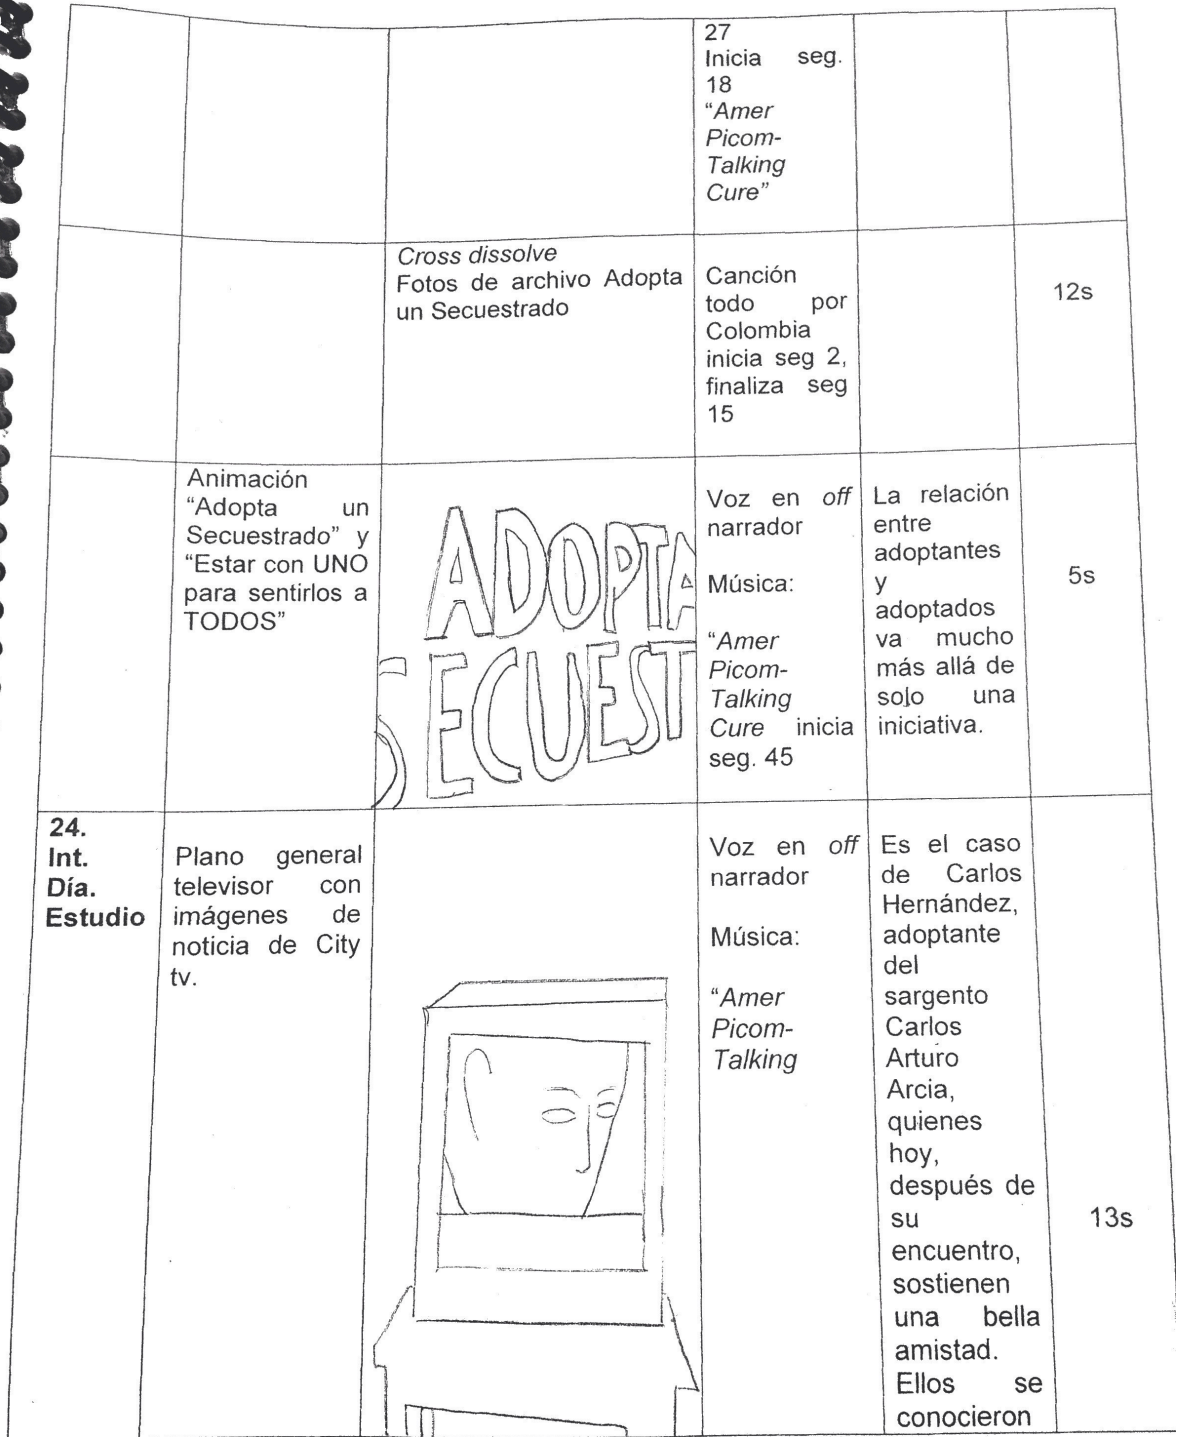 27
Inicia seg.
18
“Amer
Picom-
Talking
Cure”
Cross dissolve
Fotos de archivo Adopta
un Secuestrado
Canción
todo por
Colombia
inicia seg 2,
finaliza seg
15
12s
Animación
“Adopta un
Secuestrado” y
“Estar con UNO
para sentirlos a
TODOS”
ADOPTA
SECUEST
Voz en off
narrador
Música:
“Amer
Picom-
Talking
Cure inicia
seg. 45
La relación
entre
adoptantes
y
adoptados
va mucho
más allá de
solo una
iniciativa.
5s
24.
Int.
Día.
Estudio
Plano general
televisor con
imágenes de
noticia de City
tv.
Voz en off
narrador
Música:
“Amer
Picom-
Talking
Es el caso
de Carlos
Hernández,
adoptante
del
sargento
Carlos
Arturo
Arcia,
quienes
hoy,
después de
su
encuentro,
sostienen
una bella
amistad.
Ellos se
conocieron
13s